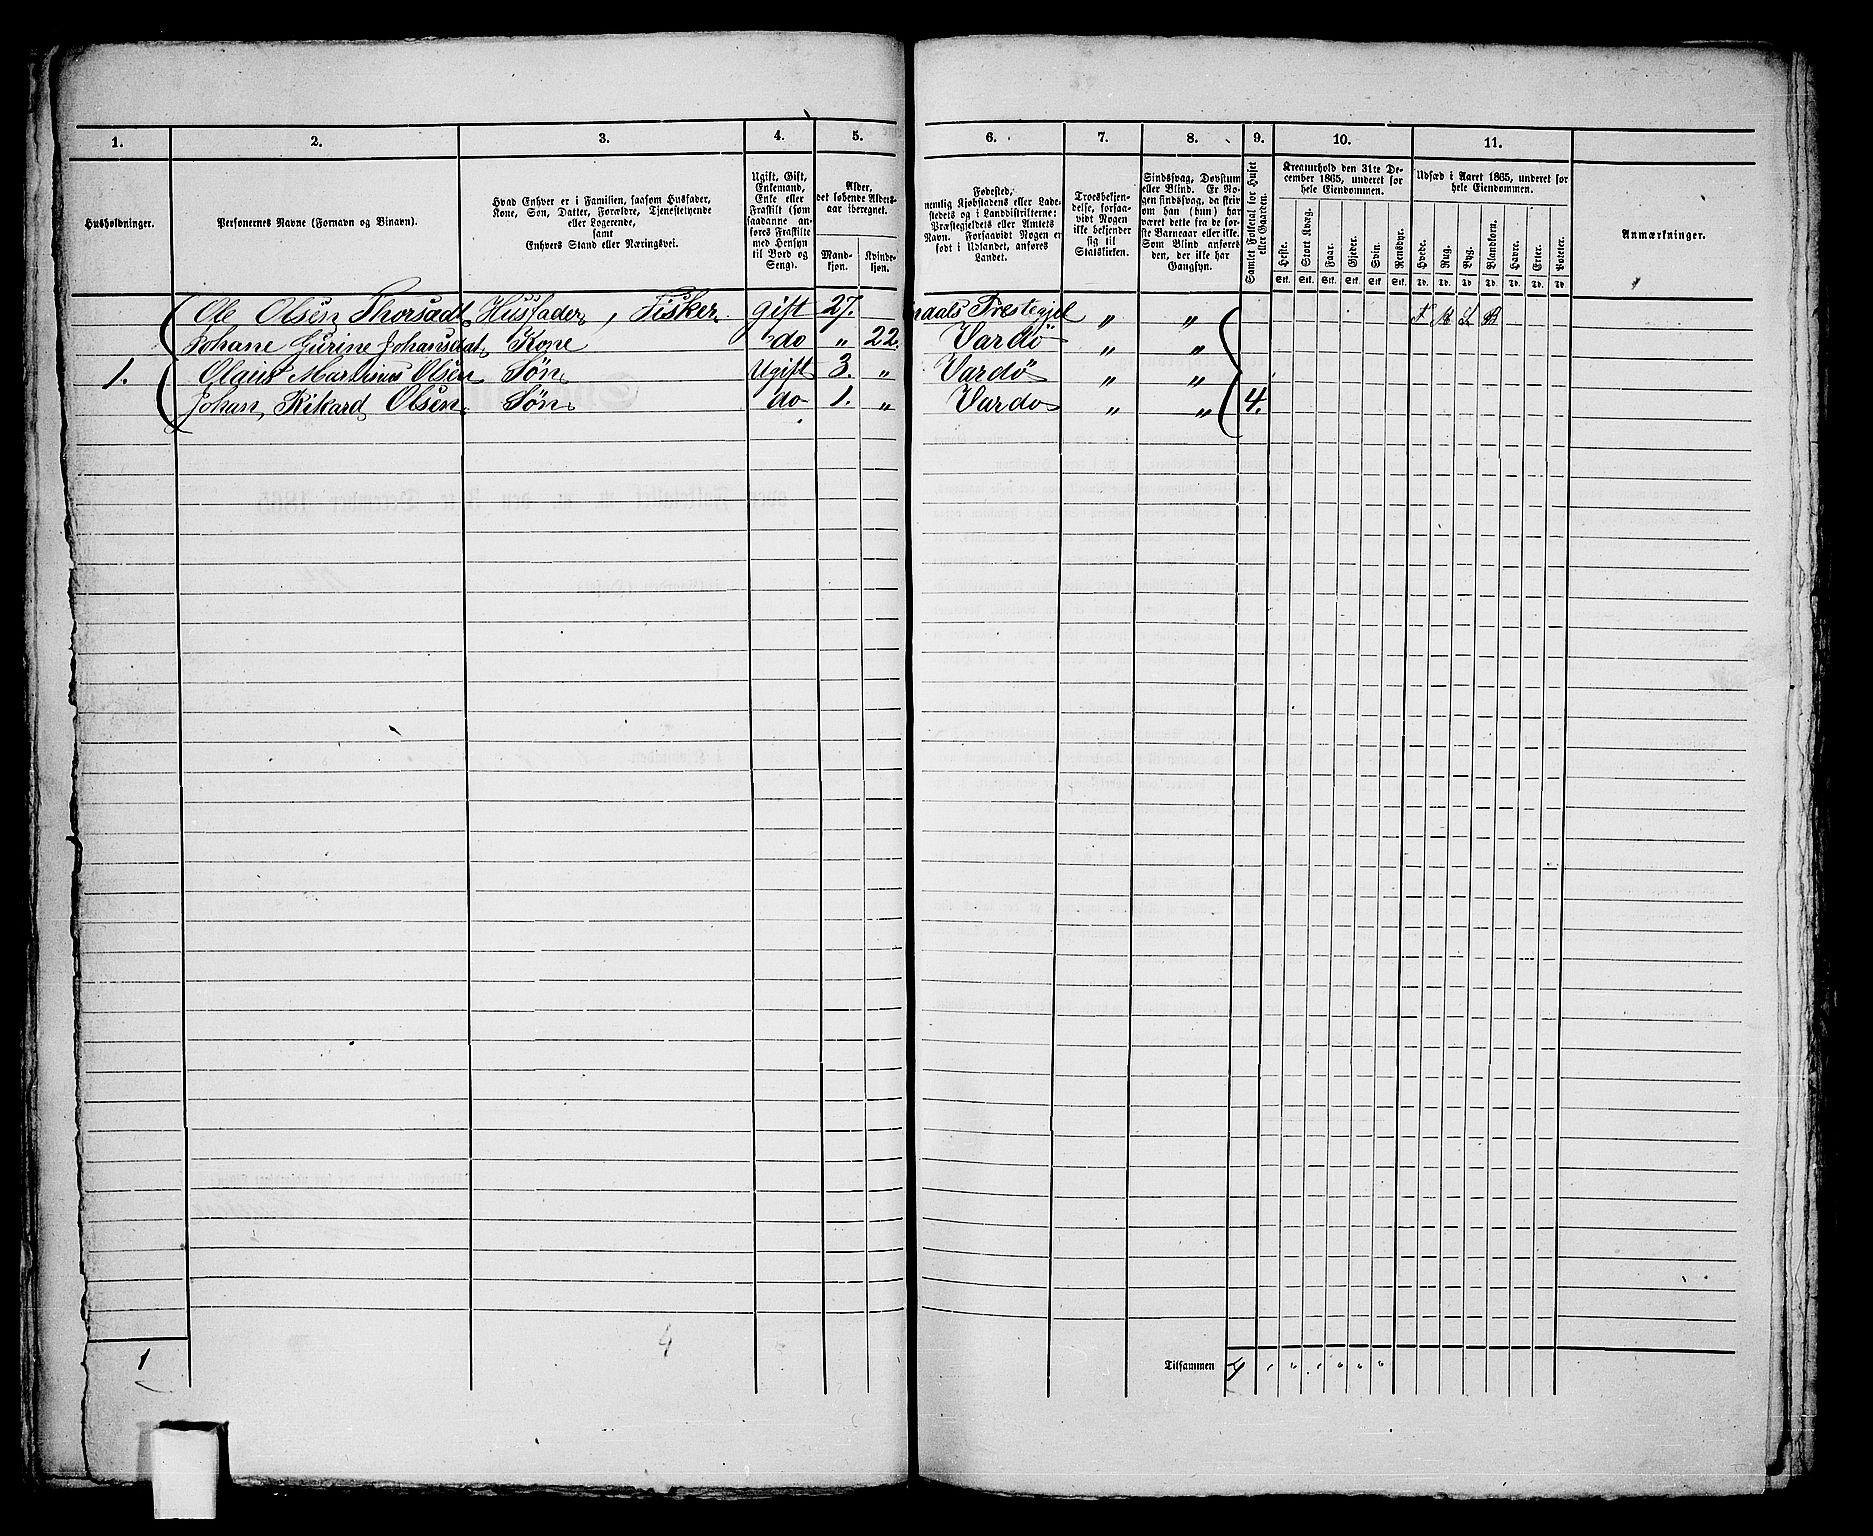 1. 2. 3. 4. 5. 6. 7. 8. 9. 10. 11.
Husholdninger.
Personernes Navne (Fornavn og Binavn).
Hvad Enhver er i Familien, saasom Husfader,
Kone, Søn, Datter, Forældre, Tjenestetyende
eller Logerende,
samt
Enhvers Stand eller Næringsvei.
Ugift, Gift,
Enkemand,
Enke eller
Fraskilt (som
saadanne an-
føres Fraskilte
med Hensyn
til Bord og
Seng).
Alder,
det løbende Alders-
aar iberegnet.
Mand-
kjøn.
Kvinde-
kjøn.
Fødested,
nemlig Kjøbstadens eller Lade-
stedets og i Landdistrikterne:
Præstegjeldets eller Amtets
Navn. Forsaavidt Nogen er
født i Udlandet, anføres
Landet.
Troesbekjen-
delse, forsaa-
vidt Nogen
ikke bekjender
sig til
Statskirken.
Sindssvag, Døvstum
eller Blind. Er No-
gen sindssvag, da skriv
om han (hun) har
været dette fra de før-
ste Barneaar eller ikke.
Som Blind anføres
den, der ikke har
Gangsyn.
Samlet Folketal for Huset
eller Gaarden.
Kreaturhold den 31te De-
cember 1865, underet for
hele Eiendommen.
Heste. Stort Kvæg. Faar. Gjeder. Svin. Rensdyr.
Stk. Stk. Stk. Stk. Stk. Stk.
Udsæd i Aaret 1865, underet for
hele Eiendommen.
Hvede. Rug. Byg. Blandkorn. Havre. Erter. Poteter.
Td. Td. Td. Td. Td. Td. Td.
Anmærkninger.
Ole Olsen Thorsadt Husfader, Fisker gift 27. Prestegjel " "
Johane Gurine Johansdat Kone do " 22. Vardö " "
1. Olaus Martinus Olsen Søn Ugift 3. " Vardö " "
Johan Rikard Olsen Søn do 1. " Vardö " " 4.
1 4 Tilsammen 4